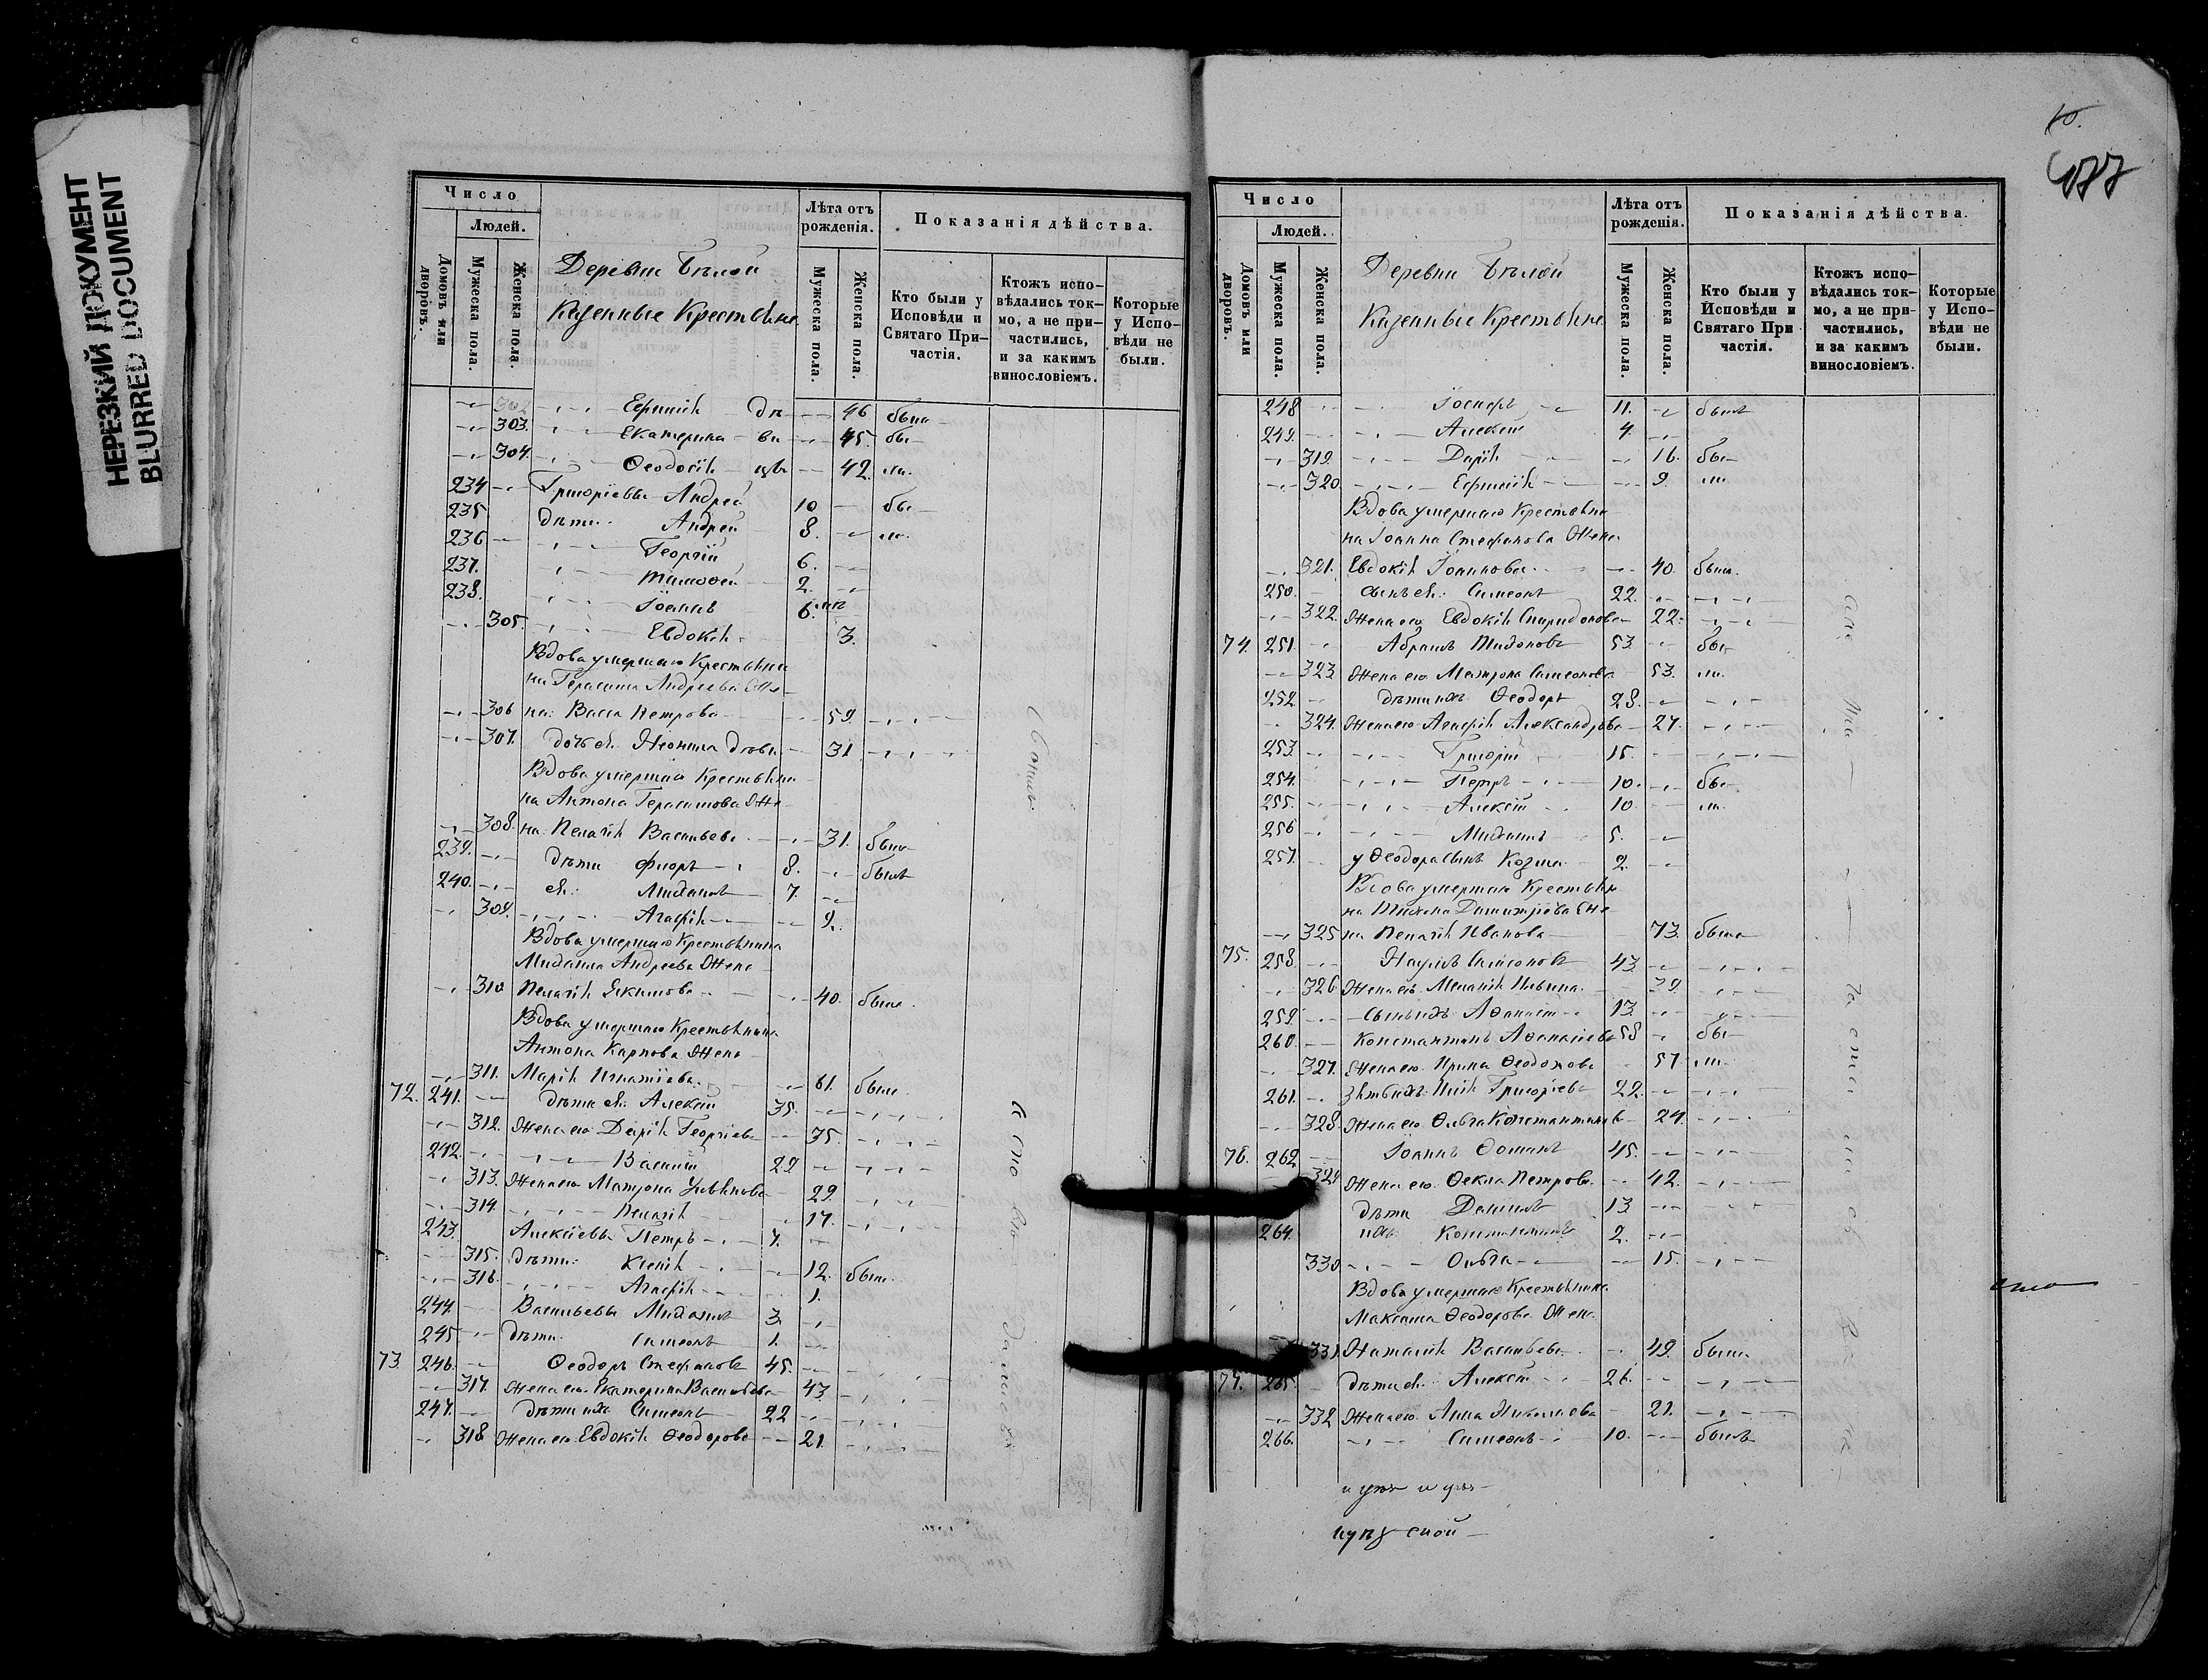 НЕРЕЗКИЙ ДОКУМЕНТ
BLURRED DOCUMENT
Число
Людей.
Домовъ или дворовъ.
Мужеска пола.
Женска пола.
Деревни Бѣлой
Казенные Крестьяне
Лѣта отъ рожденія.
Мужеска пола.
Женска пола.
Показанія дѣйства.
Кто были у Исповѣди и Святаго Причастія.
Ктожъ исповѣдались токмо, а не причастились, и за какимъ винословіемъ.
Которые у Исповѣди не были.
302 Ефимія дѣ 46 были
303. Екатерина ви 45. бы
304. Ѳеодосія цы 42. ли.
234 Григоріевы Андрей 10 бы
235 дѣти Андрей 8. ли.
236 Георгій 6.
237. Тимоѳей 2.
238. Іоаннъ 6. мѣ
305. Евдокія 3.
Вдова умершаго Крестьяни
на Герасима Андреева Же
306 на Васса Петрова 59.
307. дочь ея Неонила дѣви 31
Вдова умершаго Крестьяни
на Антона Герасимова Же
308. на Пелагія Васильева 31. была
239. дѣти Флоръ 8. былъ
240. ея: Михаилъ 7.
309. Агафія 2.
Вдова умершаго Крестьянина
Михаила Андреева Жена
310 Пелагія Якимова 40. была.
Вдова умершаго Крестьянина
Антона Карпова Жена
311. Марія Игнатіева. 61. были.
72. 241. дѣти ея. Алексій 35.
312. Жена его Дарія Георгіева 35.
242. Василій 29
313. Жена его Матрона Ульянова 29.
314. Пелагія 17.
243. Алексіевы Петръ 7.
315. дѣти: Ксенія 12. была.
316. Агафія 1.
244. Васильевы Михаилъ 3.
245 дѣти. Симеонъ 1.
73 246. Ѳеодоръ Стефановъ 45.
317. Жена его Екатерина Васильева 43.
247. дѣти ихъ Симеонъ 22
318 Жена его Евдокія Ѳеодорова 21.
177
Число
Людей.
Домовъ или дворовъ.
Мужеска пола.
Женска пола.
Деревни Бѣлой
Казенные Крестьяне
Лѣта отъ рожденія.
Мужеска пола.
Женска пола.
Показанія дѣйства.
Кто были у Исповѣди и Святаго Причастія.
Ктожъ исповѣдались токмо, а не причастились, и за какимъ винословіемъ.
Которые у Исповѣди не были.
248 Іосифъ 11. былъ
249. Алексій 4.
319. Дарія 16. бы
320. Ефимія 9. ли
Вдова умершаго Крестьяни
на Іоанна Стефанова Жена
321. Евдокія Іоаннова 40. была.
250. сынъ ея: Симеонъ 22.
322. Жена его Евдокія Спиридонова 22.
74. 251. Абрамъ Тихоновъ 53 бы
323 Жена его Матрона Симеонова 53. ли.
252 дѣти ихъ Ѳеодоръ 28.
324. Жена его Агафія Александрова 27.
253. Григорій 15.
254. Петръ 10. бы
255. Алексій 10. ли
256 Михаилъ 5.
257. у Ѳеодора сынъ Козма 2.
Вдова умершаго Крестьяни
на Тихона Димитріева Же
325 на Пелагія Иванова 73. была
75. 258. Наумъ Симеоновъ 43.
326 Жена его Меланія Ильина. 39.
259. сынъ ихъ Аѳанасій 13.
260. Константинъ Аѳанасіевъ 58 бы
327. Жена его Ирина Ѳеодотова 57. ли.
261. Зять ихъ Григорьевъ 22.
328. Жена его Ольга Константинова 24.
76. 262 Іоаннъ Ѳоминъ 45.
329 Жена его Ѳекла Петрова. 42.
дѣти Даніилъ 13
264. ихъ Константинъ 2.
330 Ольга 15.
Вдова умершаго Крестьянина
Максима Ѳеодорова Жена
331. Наталія Васильева 49. была.
77. 265. дѣти ея: Алексій 26.
332 Жена его Анна Николаева 21.
266. Симеонъ 10. былъ